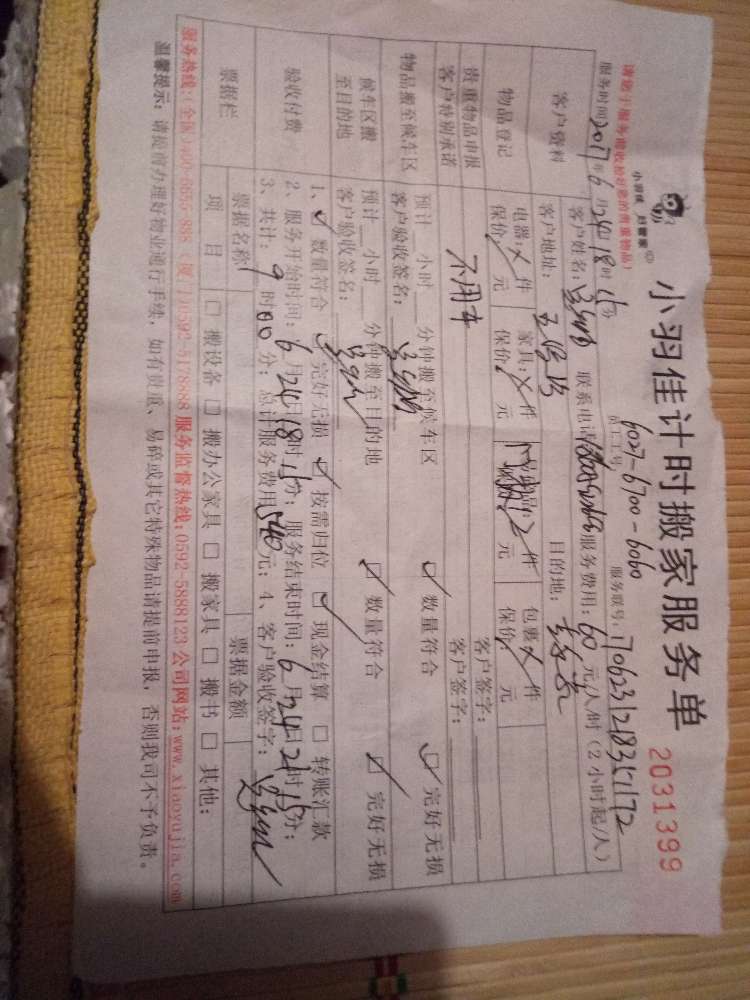 小羽佳计时搬家服务单
2031399
小羽佳 好管家
请您于服务前收拾好您的贵重物品)
员工工号:
6027-6700-6060
服务时间 2017年 6月 24日 18时 15分
服务联号:
客户资料
客户姓名:
联系电话
服务费用: 60 元/人/时(2小时起/人)
客户地址:
目的地:
物品登记
电器: 件
家具: 件
件
包裹 件
保价 元
保价: 元
元
保价: 元
贵重物品申报
客户签字:
客户特别承诺
客户签字:
物品搬至候车区
预计 小时 分钟搬至候车区
☑ 数量符合
☑ 完好无损
客户验收签名:
候车区搬至目的地
预计 小时 分钟搬至目的地
☑ 数量符合
☑ 完好无损
客户验收签名:
验收付费
1、☑ 数量符合 ☑ 完好无损 ☑ 按需归位 ☑ 现金结算 □ 转账汇款
2、服务开始时间: 6月24日18时15分; 服务结束时间: 6月24日21时15分;
3、共计: 9 时 00 分; 总计服务费用 540 元; 4、客户验收签字:
票据栏
票据名称
票据金额
项 目 □ 搬设备 □ 搬办公家具 □ 搬家具 □ 搬书 □ 其他:
服务热线:(全国)400-6650-888 (厦门)0592-5178888 服务监督热线:0592-5888123 公司网站:www.xiaoyujia.com
温馨提示: 请提前办理好物业通行手续, 如有贵重、易碎或其它特殊物品请提前申报, 否则我司不予负责。